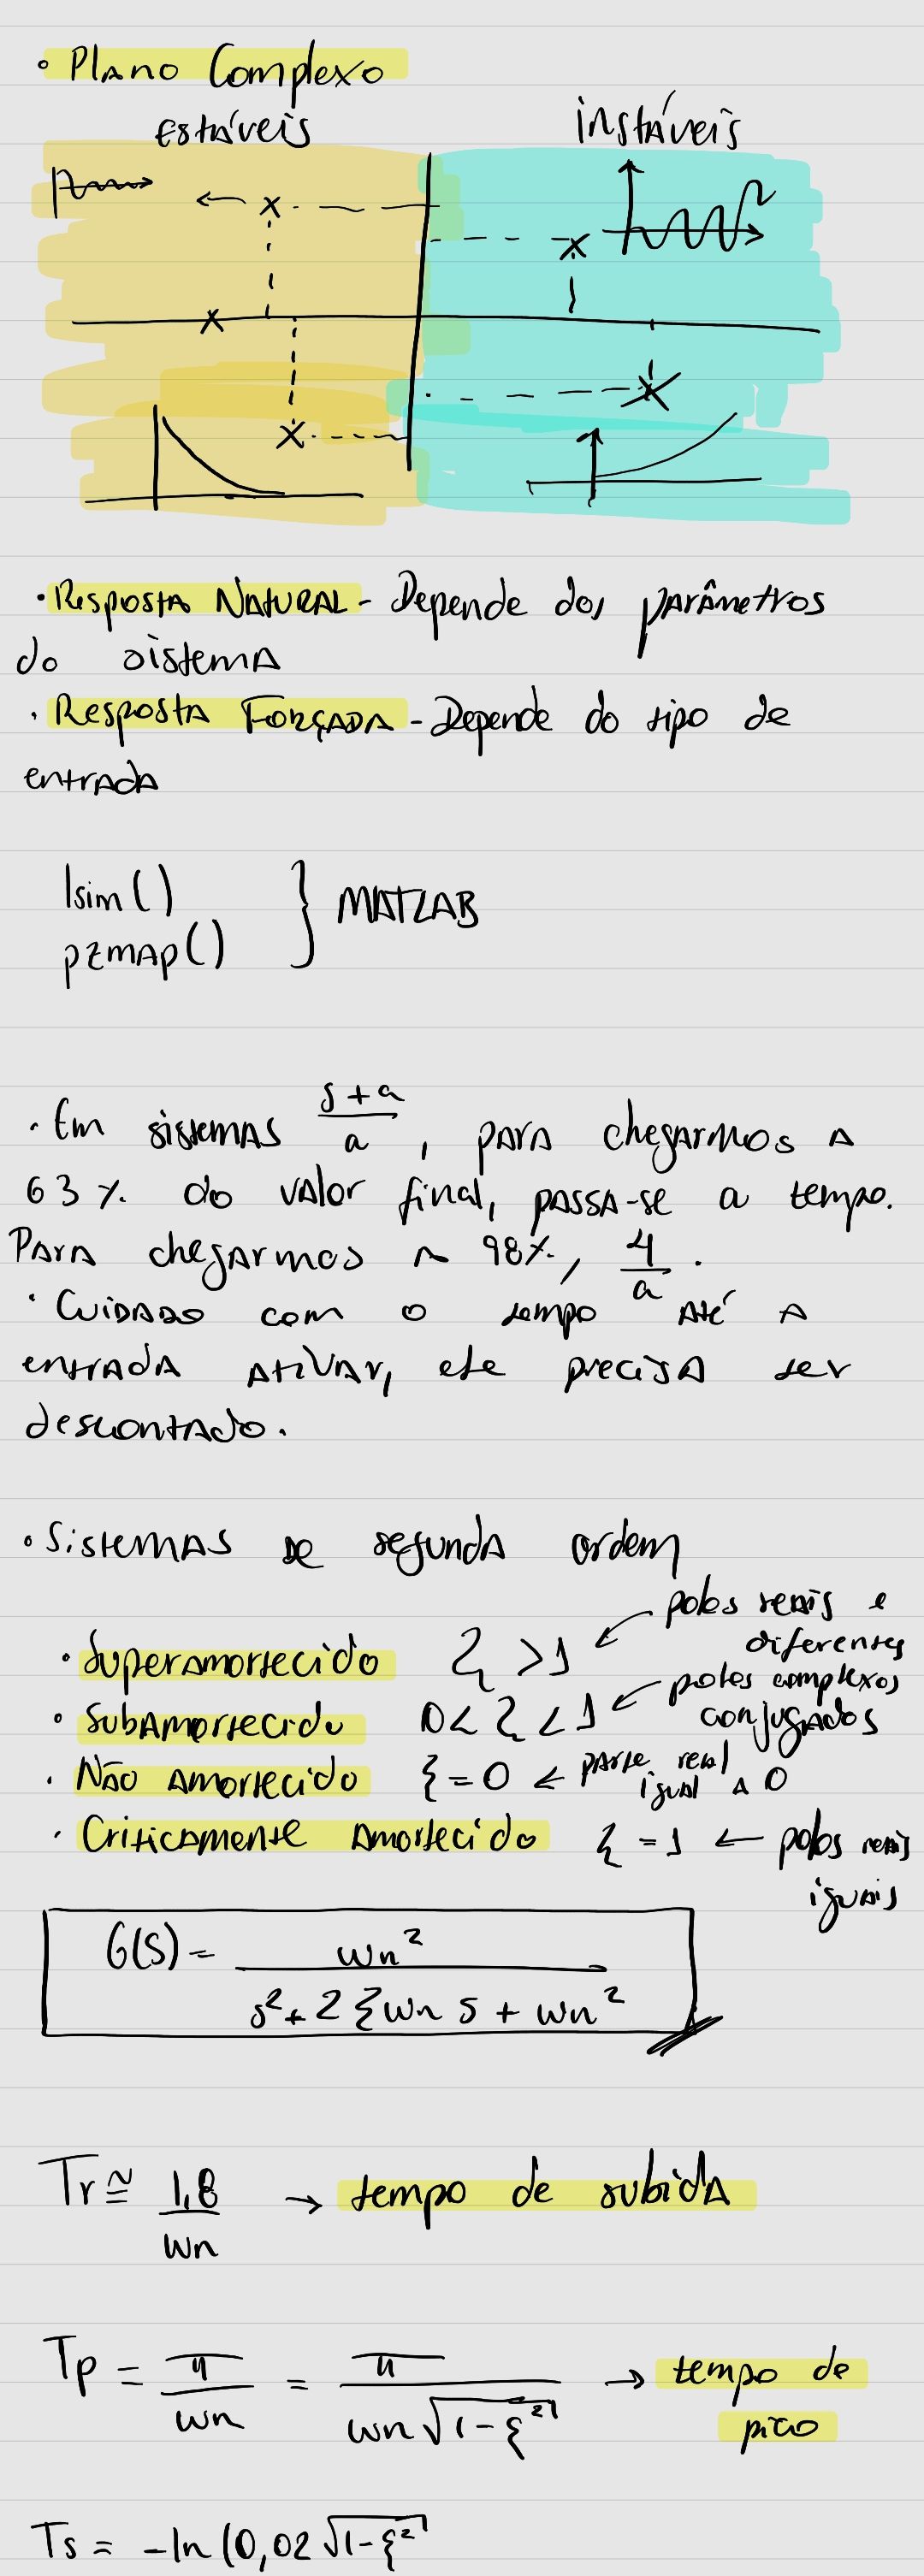 • Plano Complexo
estáveis instáveis
• Resposta Natural - Depende dos parâmetros
do sistema
• Resposta Forçada - Depende do tipo de
entrada
lsim()
pzmap() } MATLAB
• Em sistemas (s+a)/a, para chegarmos a
63% do valor final, passa-se a tempo.
Para chegarmos a 98%, 4/a.
• Cuidado com o tempo até a
entrada ativar, ele precisa ser
descontado.
• Sistemas de segunda ordem
• Superamortecido ξ > 1 ← polos reais e diferentes
• Subamortecido 0 < ξ < 1 ← polos complexos conjugados
• Não amortecido ξ = 0 ← parte real igual a 0
• Criticamente amortecido ξ = 1 ← polos reais iguais
G(s) = wn² / (s² + 2ξwn s + wn²)
Tr ≅ 1,8/wn → tempo de subida
Tp = π/wn = π/(wn√(1-ξ²)) → tempo de
pico
Ts = -ln(0,02√(1-ξ²)